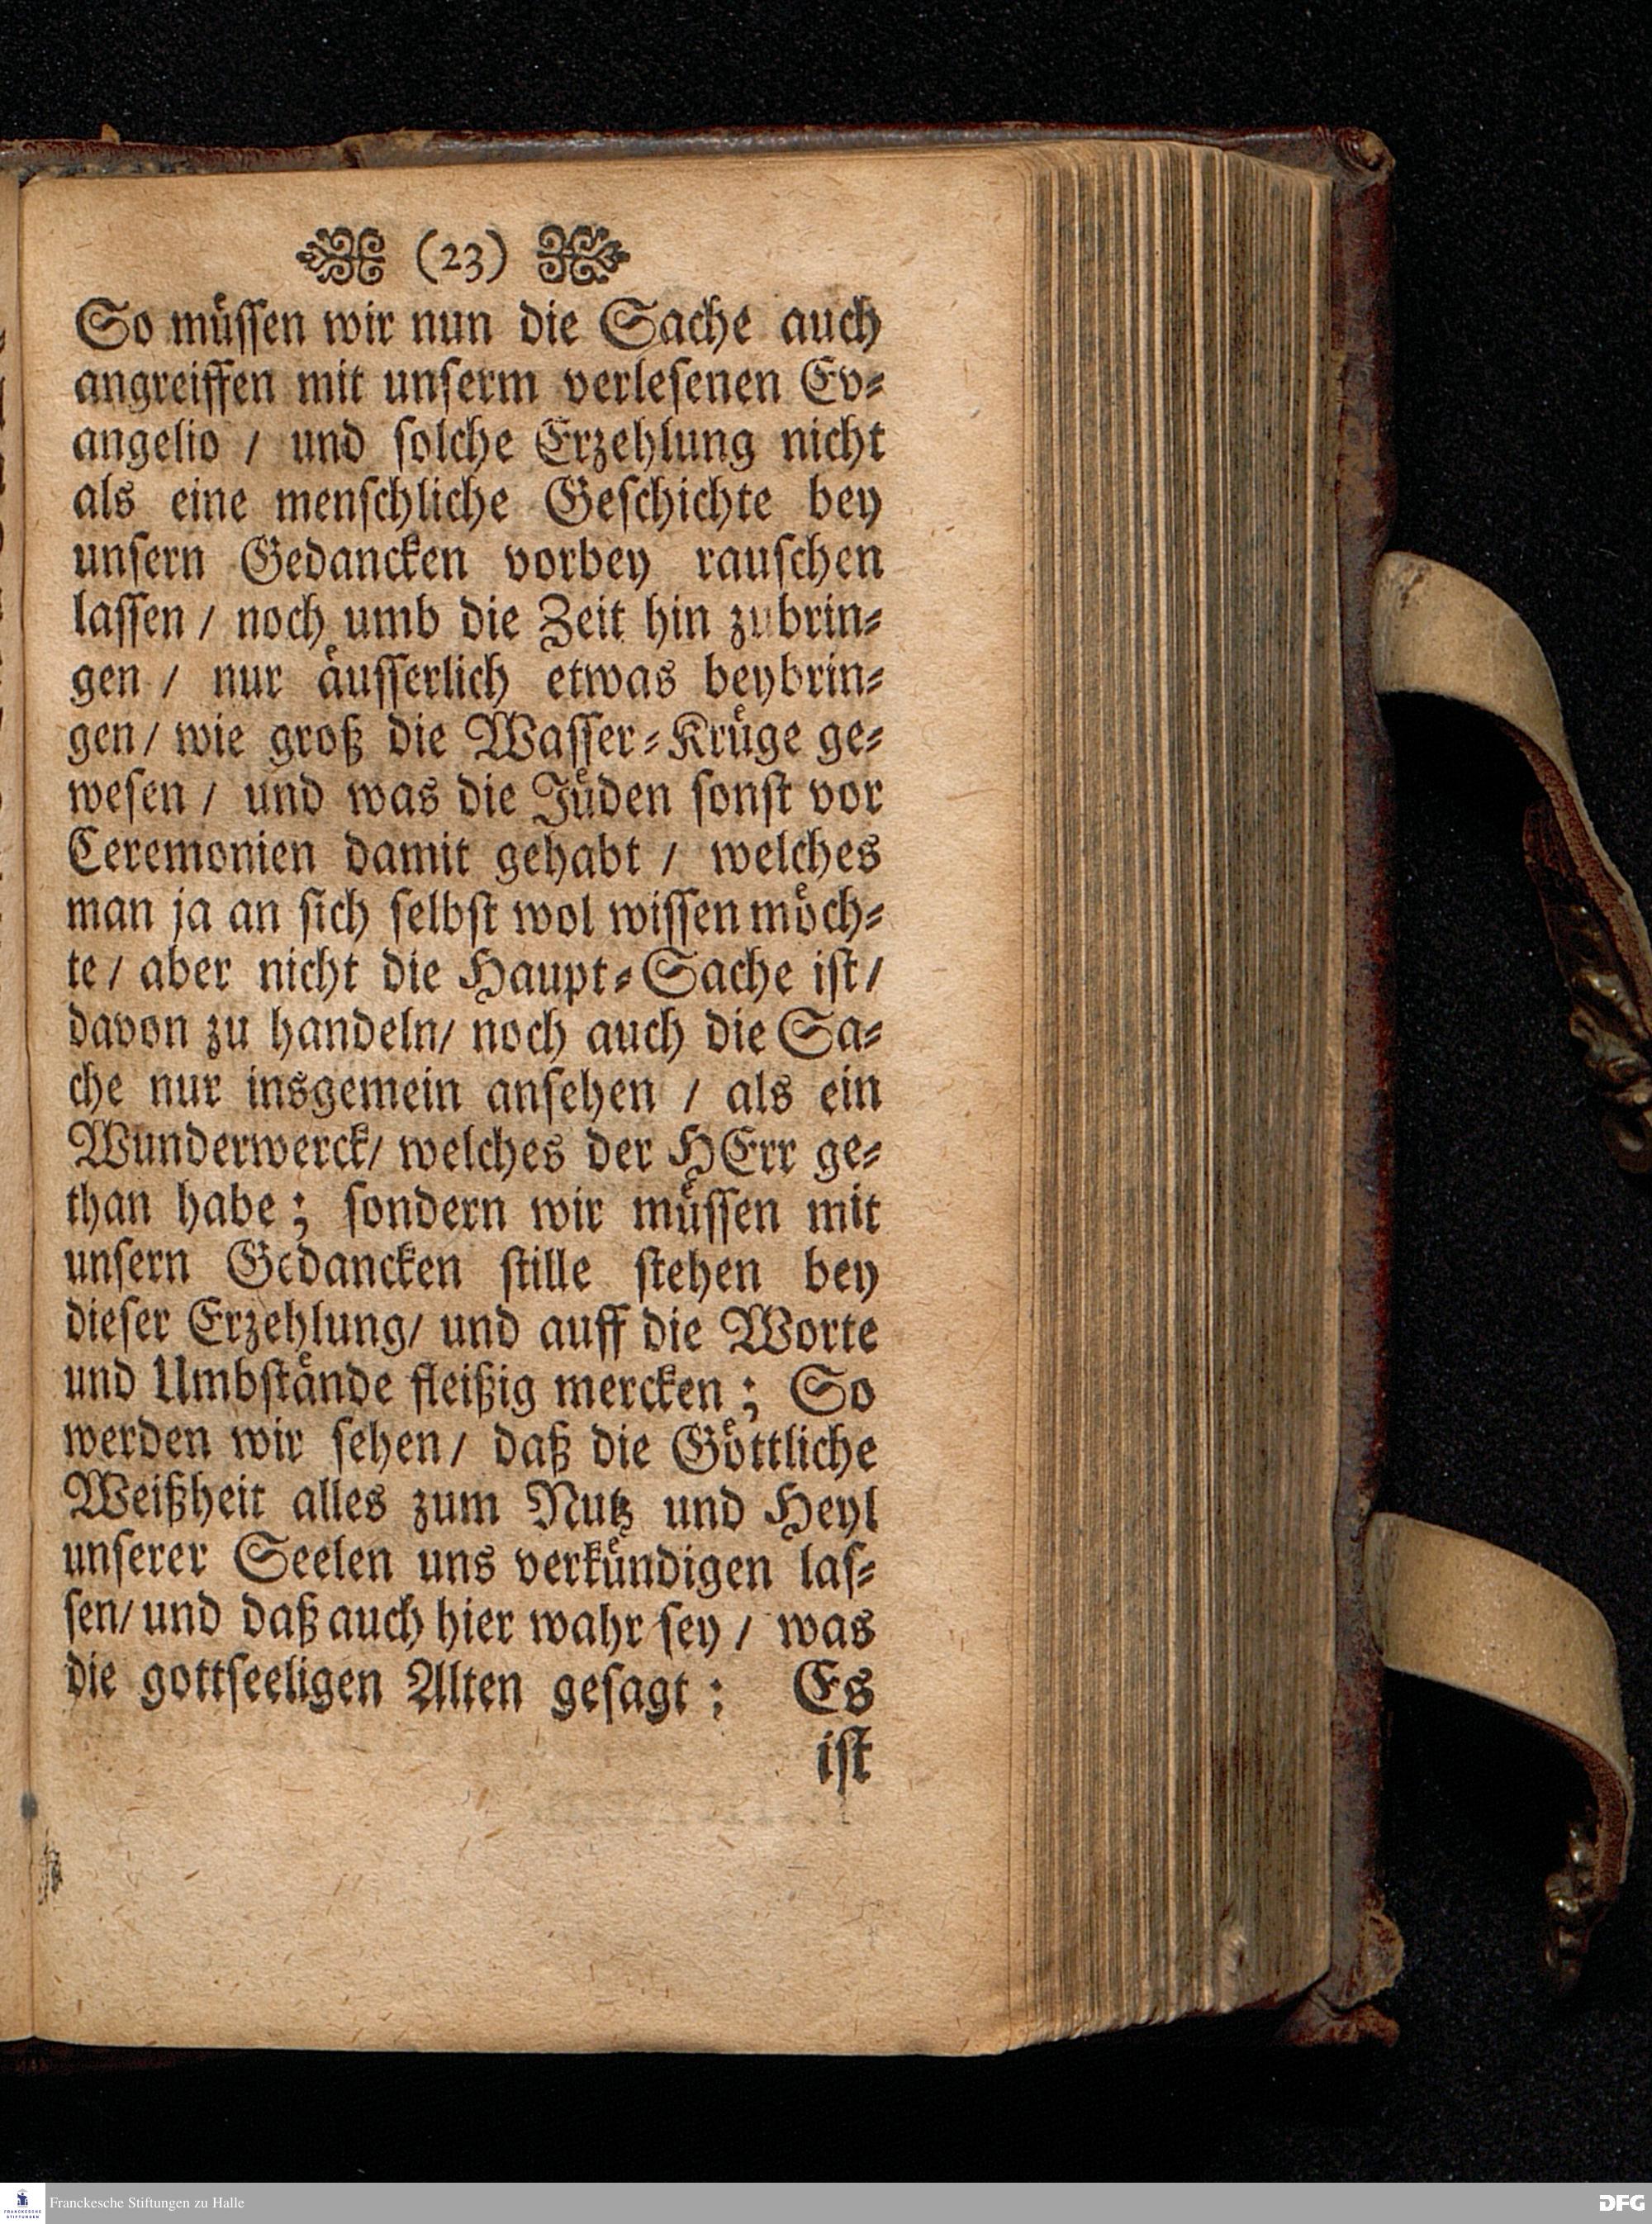 (23)
So müſſen wir nun die Sache auch
angreiffen mit unſerm verleſenen Ev⸗
angelio / und ſolche Erzehlung nicht
als eine menſchliche Geſchichte bey
unſern Gedancken vorbey rauſchen
laſſen / noch umb die Zeit hin zubrin⸗
gen / nur äuſſerlich etwas beybrin⸗
gen / wie groß die Waſſer⸗Krüge ge⸗
weſen / und was die Jüden ſonſt vor
Ceremonien damit gehabt / welches
man ja an ſich ſelbſt wol wiſſen möch⸗
te / aber nicht die Haupt⸗Sache iſt /
davon zu handeln / noch auch die Sa⸗
che nur insgemein anſehen / als ein
Wunderwerck / welches der HErr ge⸗
than habe ; ſondern wir müſſen mit
unſern Gedancken ſtille ſtehen bey
dieſer Erzehlung / und auff die Worte
und Umbſtände fleißig mercken ; So
werden wir ſehen / daß die Göttliche
Weißheit alles zum Nutz und Heyl
unſerer Seelen uns verkündigen laſ⸗
ſen / und daß auch hier wahr ſey / was
die gottſeeligen Alten geſagt : Es
iſt
Franckesche Stiftungen zu Halle
FRANCKESCHE STIFTUNGEN
DFG